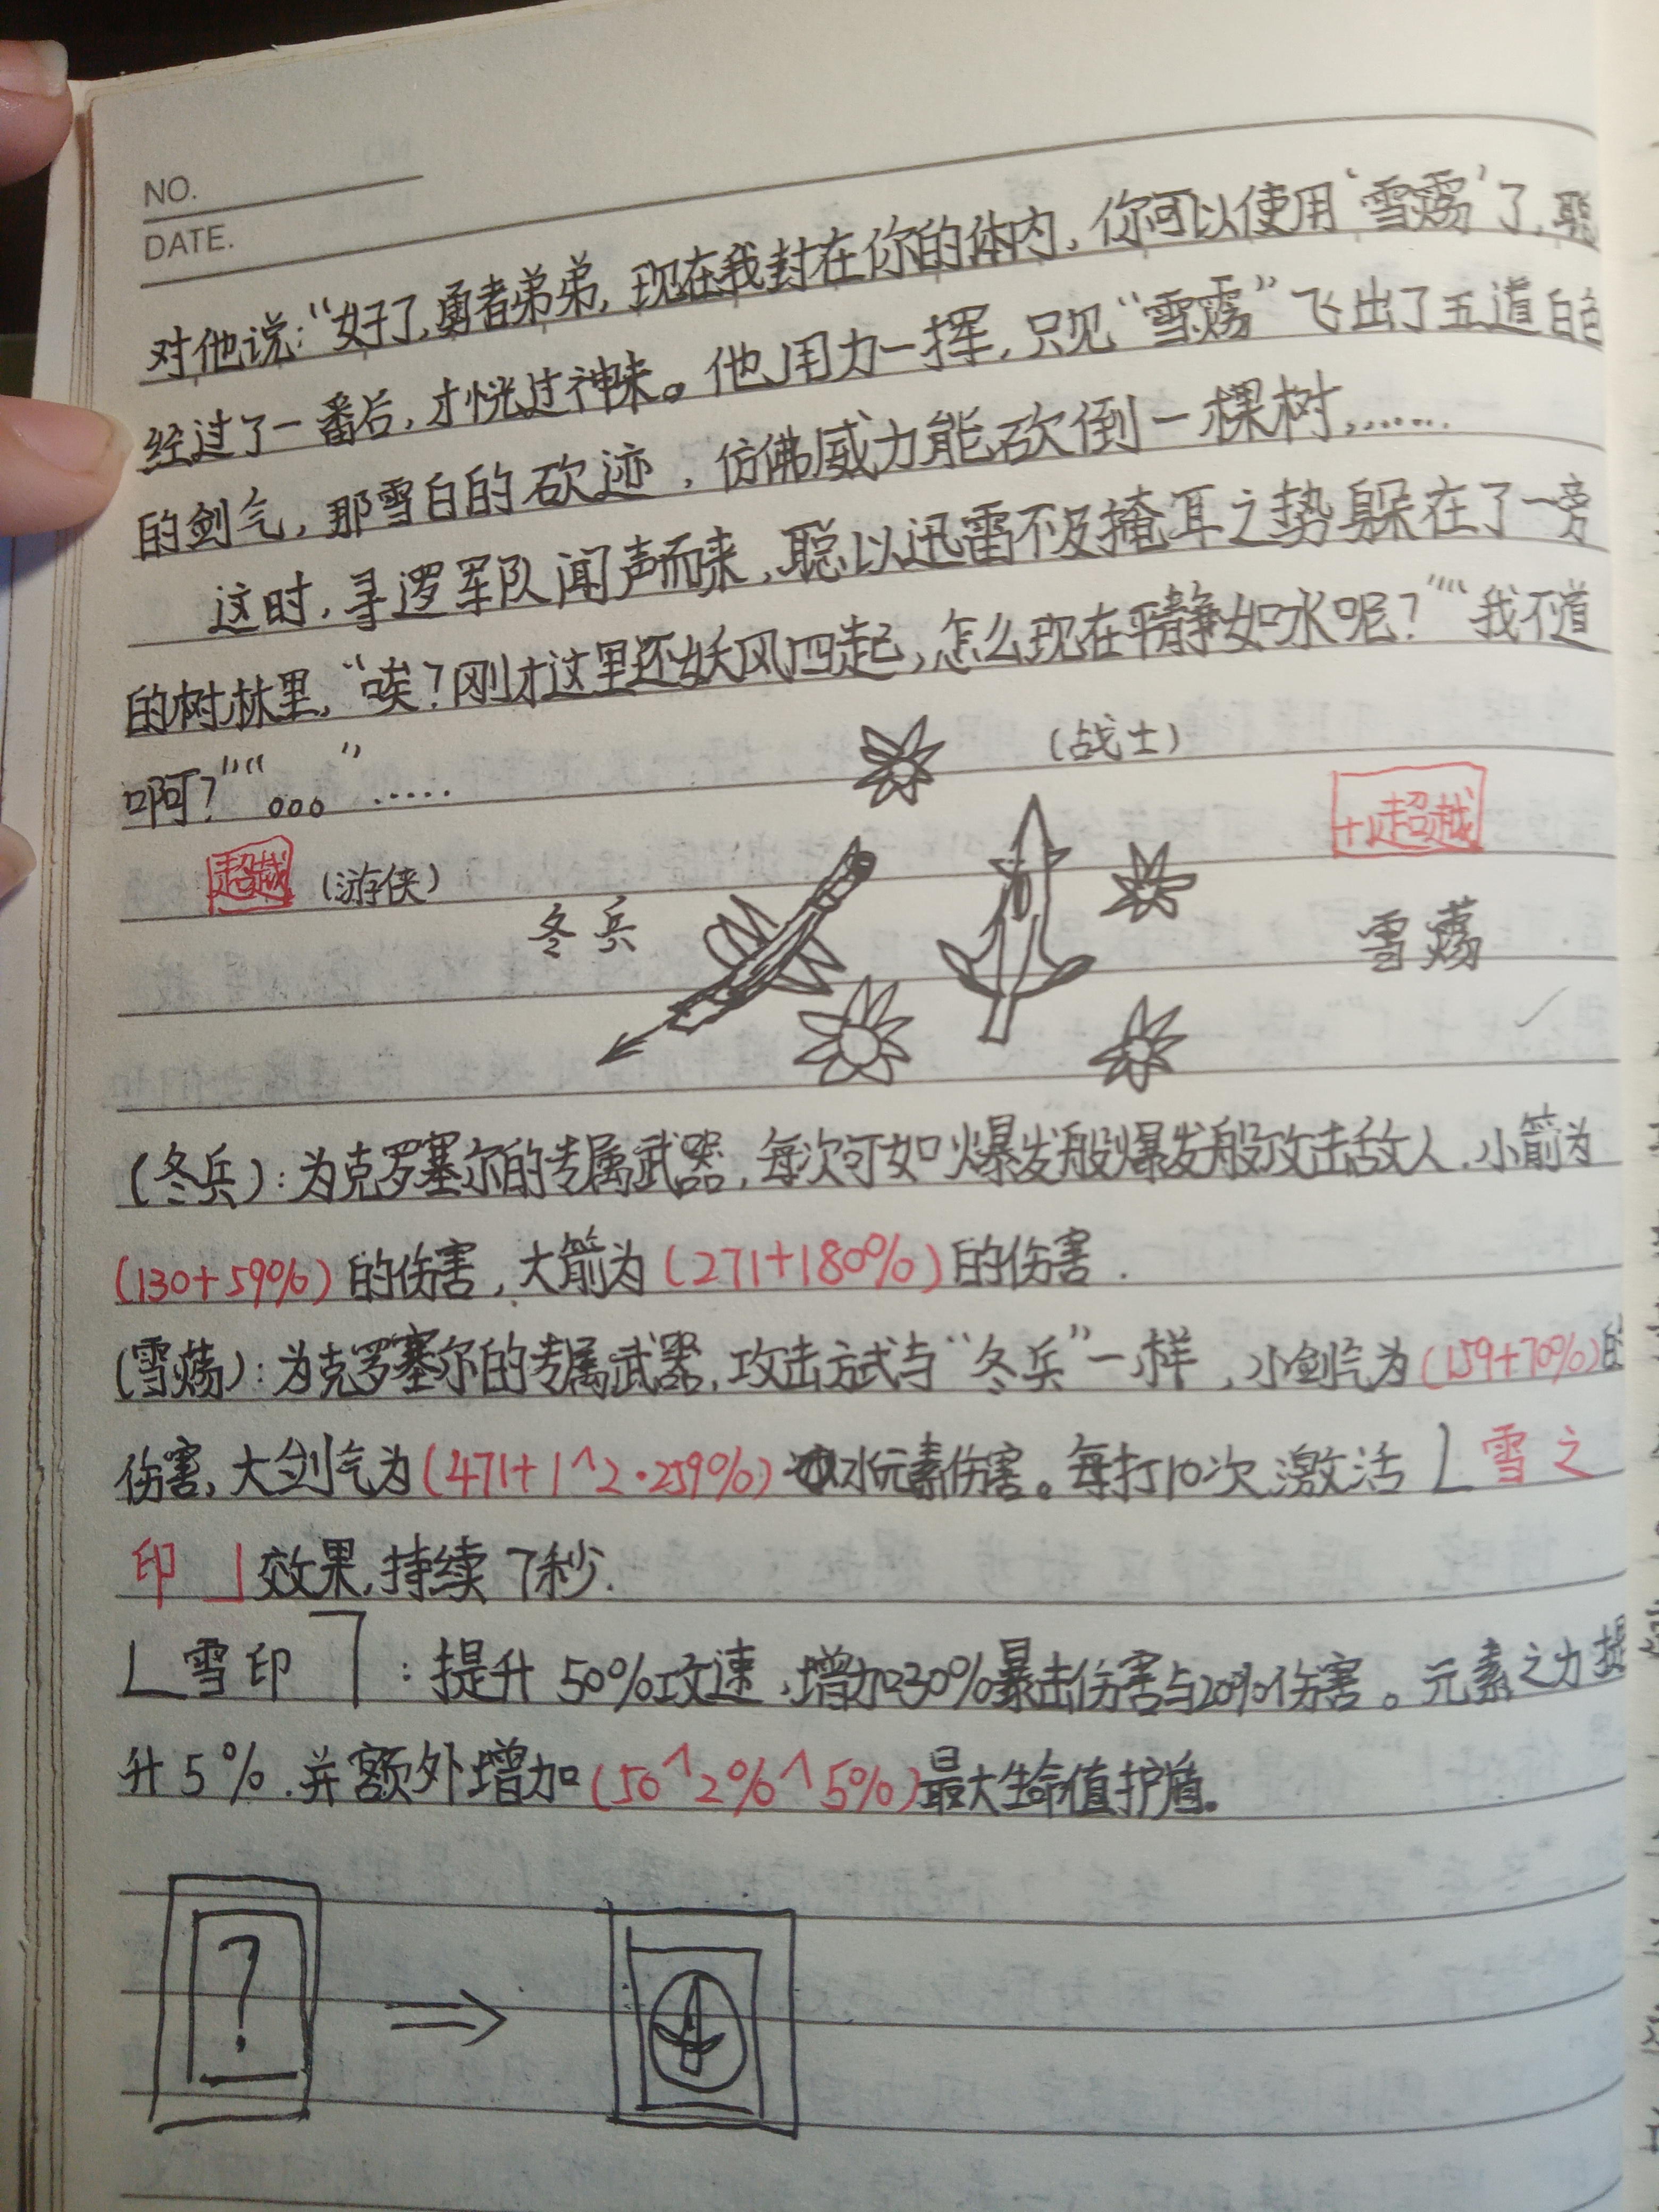 NO.
DATE.
对他说:“好了,勇者弟弟,现在我封在你的体内,你可以使用‘雪荡’了,聪
经过了一番后,才恍过神来。他用力一挥,只见“雪荡”飞出了五道白色
的剑气,那雪白的砍迹,仿佛威力能砍倒一棵树,……
这时,寻逻军队闻声而来,聪以迅雷不及掩耳之势躲在了一旁
的树林里,“唉?刚才这里还妖风四起,怎么现在平静如水呢?”“我不道
啊?”“。。。”……
(战士)
+1超越
超越 (游侠)
冬兵
雪荡
(冬兵):为克罗塞尔的专属武器,每次可如爆发般爆发般攻击敌人.小箭为
(130+59%)的伤害,大箭为(271+180%)的伤害.
(雪荡):为克罗塞尔的专属武器,攻击方式与“冬兵”一样,小剑气为(159+70%)的
伤害,大剑气为(471+1^2·259%)冰元素伤害。每打10次激活「雪之
印」效果,持续7秒.
L雪印㇕:提升50%攻速,增加30%暴击伤害与20%伤害。元素之力提
升5%.并额外增加(50^2%^5%)最大生命值护盾。
?